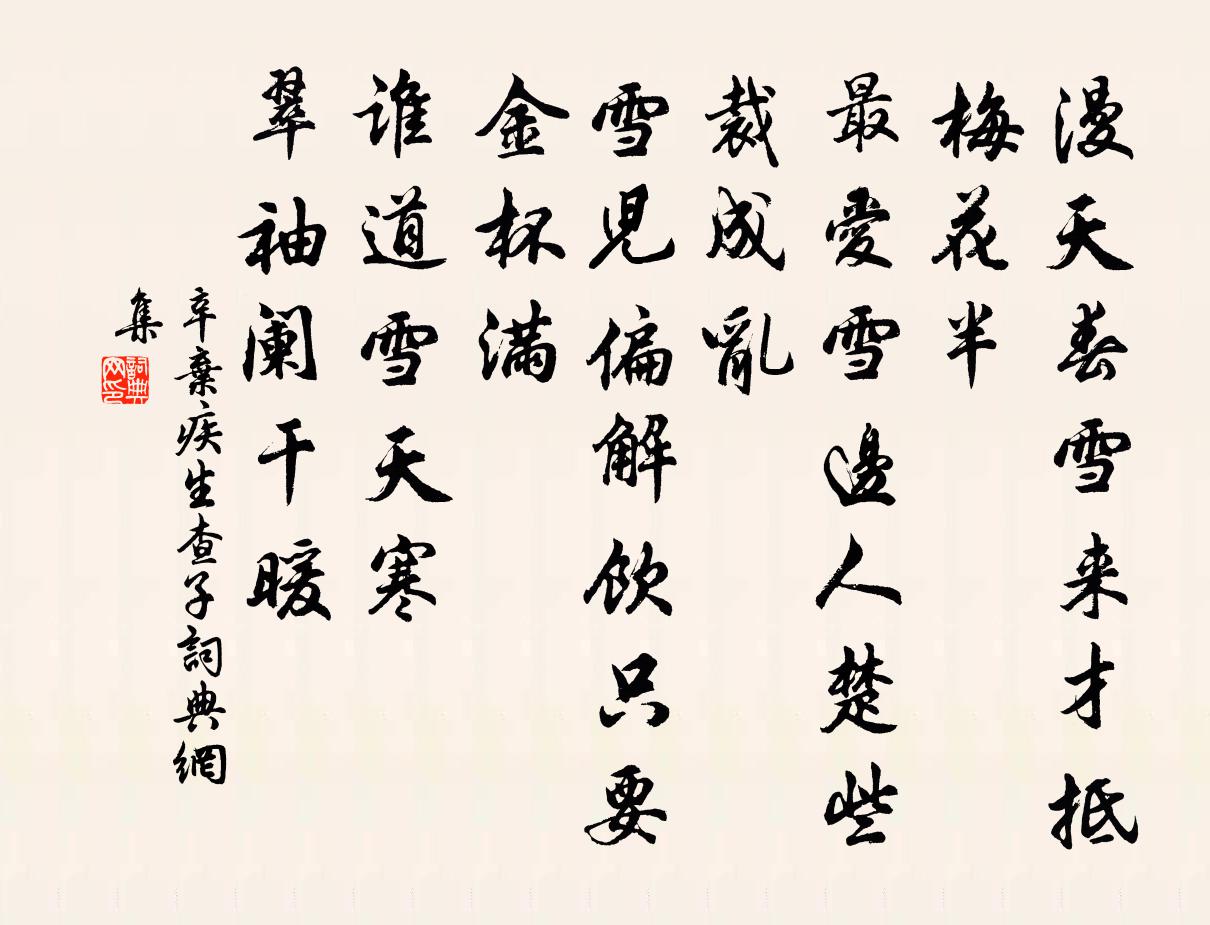 漫天春雪来才抵
梅花半
最愛雪邊人楚些
裁成亂
雪児偏解飲只要
金杯滿
谁道雪天寒
翠袖阑干暖
辛棄疾生查子詞典網
集
詞典
网印